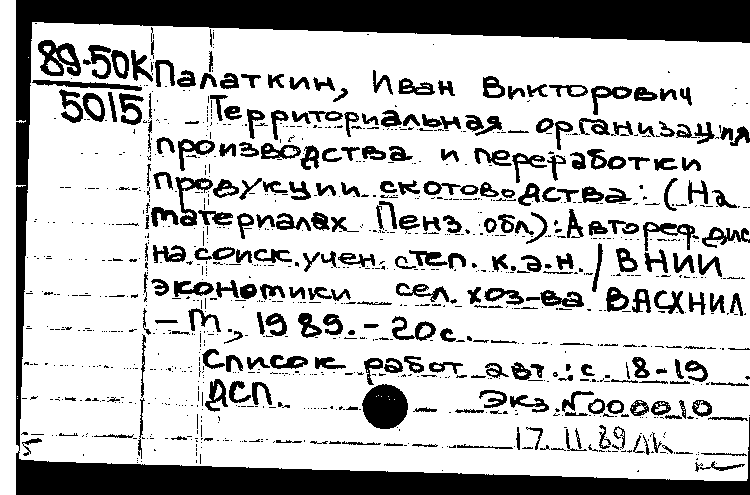 89-50К Палаткин, Иван Викторович
5015 - Территориальная организация
производства и переработки
продукции скотоводства: (На
материалах Пенз. обл.): Автореф. дис
на соиск. учен. степ. к.э.н. / ВНИИ
экономики сел. хоз-ва ВАСХНИЛ
- М., 1989. - 20с.
Список работ авт.: с. 18-19
ДСП. Экз. №000010
17.11.89 ЛК
5